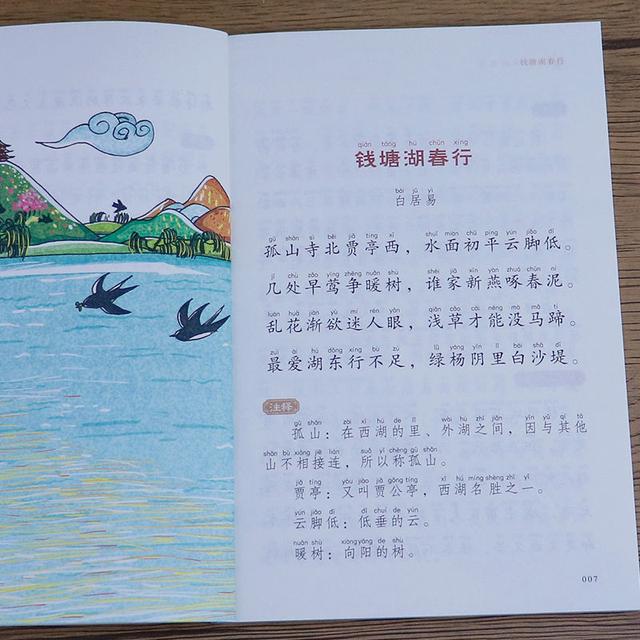 钱塘湖春行
qián táng hú chūn xíng
钱塘湖春行
bái jū yì
白居易
gū shān sì běi jiǎ tíng xī shuǐ miàn chū píng yún jiǎo dī
孤山寺北贾亭西，水面初平云脚低。
jǐ chù zǎo yīng zhēng nuǎn shù shéi jiā xīn yàn zhuó chūn ní
几处早莺争暖树，谁家新燕啄春泥。
luàn huā jiàn yù mí rén yǎn qiǎn cǎo cái néng mò mǎ tí
乱花渐欲迷人眼，浅草才能没马蹄。
zuì ài hú dōng xíng bù zú lǜ yáng yīn lǐ bái shā dī
最爱湖东行不足，绿杨阴里白沙堤。
注释
gū shān zài xī hú de lǐ wài hú zhī jiān yīn yǔ qí tā
孤山：在西湖的里、外湖之间，因与其他
shān bù xiāng jiē lián suǒ yǐ chēng gū shān
山不相接连，所以称孤山。
jiǎ tíng yòu jiào jiǎ gōng tíng xī hú míng shèng zhī yī
贾亭：又叫贾公亭，西湖名胜之一。
yún jiǎo dī dī chuí de yún
云脚低：低垂的云。
nuǎn shù xiàng yáng de shù
暖树：向阳的树。
007